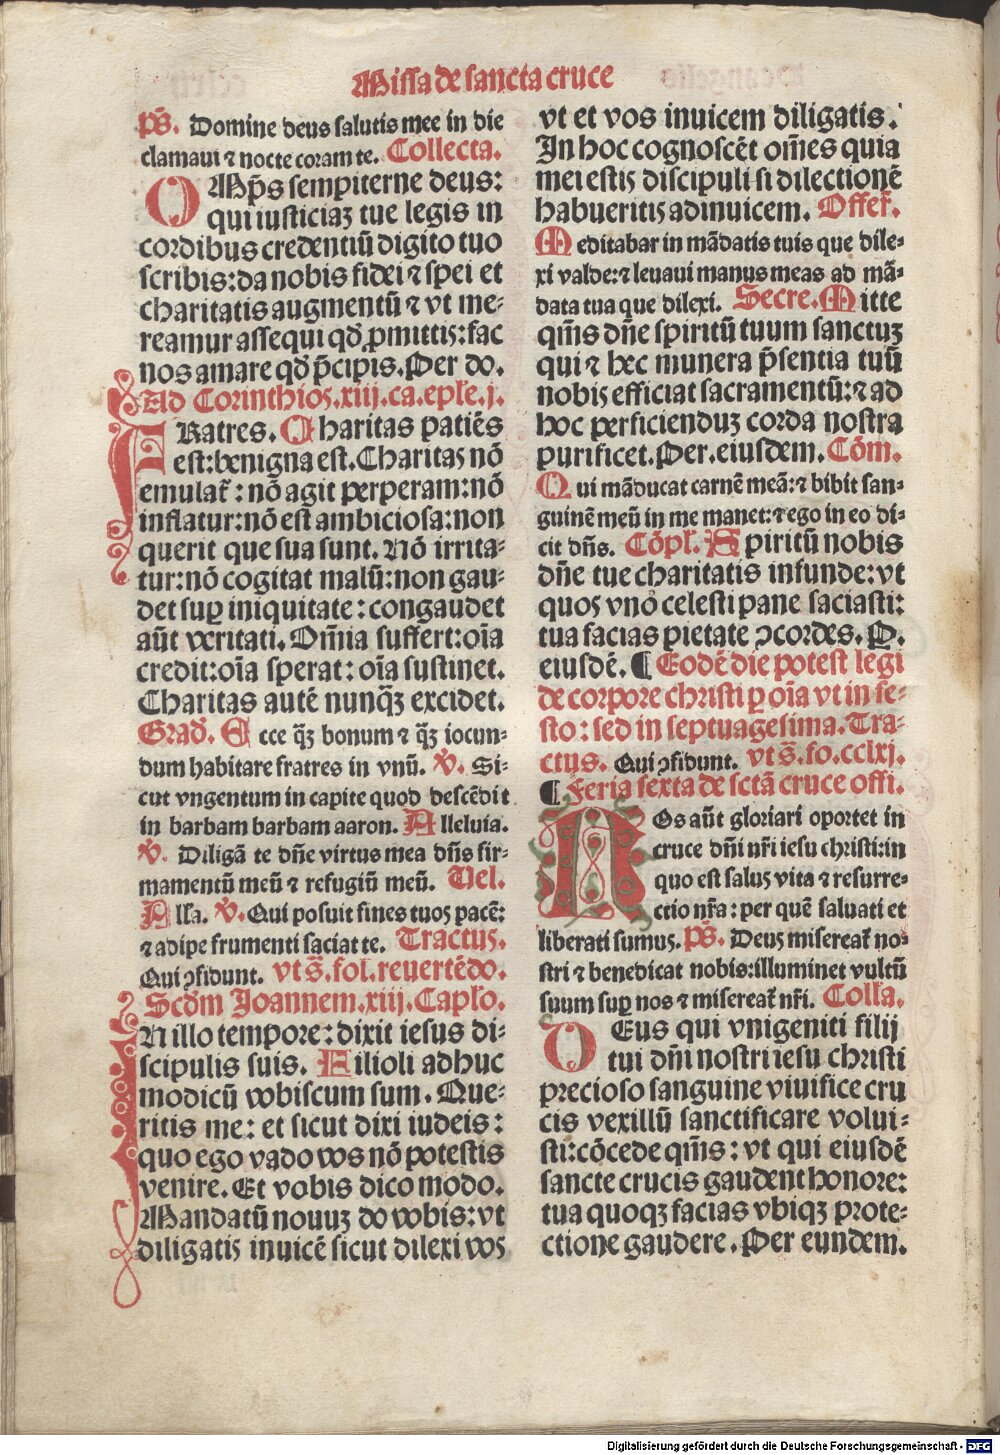 Missa de sancta cruce
p̄s. Domine deus salutis mee in die
clamaui ⁊ nocte coram te. Collecta.
OMp̄s sempiterne deus:
qui iusticiaꝫ tue legis in
cordibus credentiū digito tuo
scribis: da nobis fidei ⁊ spei et
charitatis augmentū ⁊ vt me-
reamur assequi qđ ꝓmittis: fac
nos amare qđ p̄cipis. Per do.
Ad Corinthios. xiij. ca. ep̄le. j.
FRatres. Charitas patiēs
est: benigna est. Charitas nō
emulat̄: nō agit perperam: nō
inflatur: nō est ambiciosa: non
querit que sua sunt. Nō irrita-
tur: nō cogitat malū: non gau-
det suꝑ iniquitate: congaudet
aūt veritati. Om̄ia suffert: oīa
credit: oīa sperat: oīa sustinet.
Charitas autē nunq̄ꝫ excidet.
Grad. Ecce q̄ꝫ bonum ⁊ q̄ꝫ iocun-
dum habitare fratres in vnū. ℣. Si-
cut vngentum in capite quod descēdit
in barbam barbam aaron. Alleluia.
℣. Diligā te dn̄e virtus mea dn̄s fir-
mamentū meū ⁊ refugiū meū. Uel.
Alla. ℣. Qui posuit fines tuos pacē:
⁊ adipe frumenti saciat te. Tractus.
Qui ꝯfidunt. vt s̄. fol. reuertēdo.
Scd̄m Joannem. xiij. Caplo.
IN illo tempore: dixit iesus di-
scipulis suis. Filioli adhuc
modicū vobiscum sum. Que-
ritis me: et sicut dixi iudeis:
quo ego vado vos nō potestis
venire. Et vobis dico modo.
Mandatū nouuꝫ do vobis: vt
diligatis inuicē sicut dilexi vos
vt et vos inuicem diligatis.
In hoc cognoscēt om̄es quia
mei estis discipuli si dilectionē
habueritis adinuicem. Offer̄.
Meditabar in mādatis tuis que dile-
xi valde: ⁊ leuaui manus meas ad mā-
data tua que dilexi. Secre. Mitte
qm̄s dn̄e spiritū tuum sanctuꝫ
qui ⁊ hec munera p̄sentia tuū
nobis efficiat sacramentū: ⁊ ad
hoc perficienduꝫ corda nostra
purificet. Per. eiusdem. Cōm.
Qui māducat carnē meā: ⁊ bibit san-
guinē meū in me manet: ⁊ ego in eo di-
cit dn̄s. Cōpl. Spiritū nobis
dn̄e tue charitatis infunde: vt
quos vno celesti pane saciasti:
tua facias pietate ꝯcordes. P.
eiusdē. ¶ Eodē die potest legi
de corpore christi ꝑ oīa vt in fe-
sto: sed in septuagesima. Tra-
ctus. Qui ꝯfidunt. vt s̄. fo. cclxj.
¶ Feria sexta de sctā cruce offi.
NOs aūt gloriari oportet in
cruce dn̄i nr̄i iesu christi: in
quo est salus vita ⁊ resurre-
ctio nr̄a: per quē saluati et
liberati sumus. p̄s. Deus misereat̄ no-
stri ⁊ benedicat nobis: illuminet vultū
suum suꝑ nos ⁊ misereat̄ nr̄i. Colla.
DEus qui vnigeniti filij
tui dn̄i nostri iesu christi
precioso sanguine viuifice cru
cis vexillū sanctificare volui-
sti: cōcede qm̄s: vt qui eiusdē
sancte crucis gaudent honore:
tua quoqꝫ facias vbiqꝫ prote-
ctione gaudere. Per eundem.
Digitalisierung gefördert durch die Deutsche Forschungsgemeinschaft - DFG